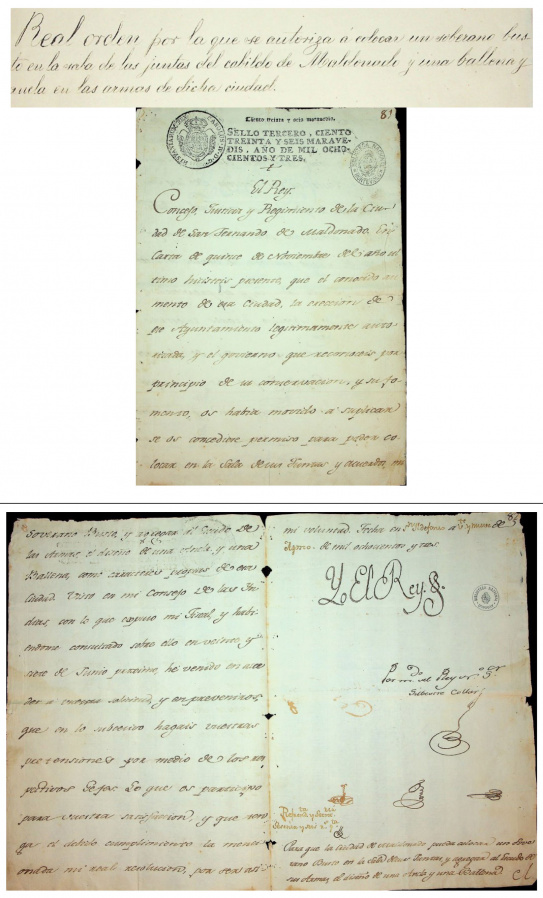 Real orden por la que se autoriza á colocar un soberano bus
to en la sala de las juntas del cabildo de Maldonado y una ballena y
ancla en las armas de dicha ciudad.
Ciento treinta y seis maravedis.
83
SELLO TERCERO, CIENTO
TREINTA Y SEIS MARAVE-
DIS, AÑO DE MIL OCHO-
CIENTOS Y TRES.
El Rey.
Concejo, Justicia y Regimiento de la Ciu-
dad de San Fernando de Maldonado. En
Carta de quince de Noviembre del año ul
timo hicisteis presente, que el conocido au
mento de esa Ciudad, la ereccion de
ese Ayuntamiento legitimamente auto-
rizado, y el govierno que reconoceis por
principio de su conservacion, y su fo-
mento, os habia movido à suplicar
se os concediese permiso para poder co
locar en la Sala de sus Juntas y acuerdos, mi
Soverano Busto, y agregar al Escudo de
las Armas, el diseño de una Ancla, y una
Ballena, como caracteres propios de esa
Ciudad. Visto en mi Consejo de las In-
dias, con lo que expuso mi Fiscal, y habi-
endome consultado sobre ello en veinte, y
siete de Junio proximo, hé venido en acce
der a vuestra solicitud, y en preveniros,
que en lo subcesivo hagais vuestras
pretensiones por medio de los res
pectivos Gefes. Lo que os participo
para vuestra satisfaccion, y que ten
ga el debido cumplimiento la mencio
onada mi real resolucion, por ser asi
mi voluntad. Fecha en Sn Ildefonso a de
Agosto de mil ochocientos y tres.
Yo El Rey
Por mdo del Rey nro Sor
Silvestre Collar
Para que la Ciudad de Maldonado pueda colocar un Sove
rano Busto en la Sala de sus Juntas, y agregar al Escudo de
sus Armas, el diseño de una Ancla y una Ballena